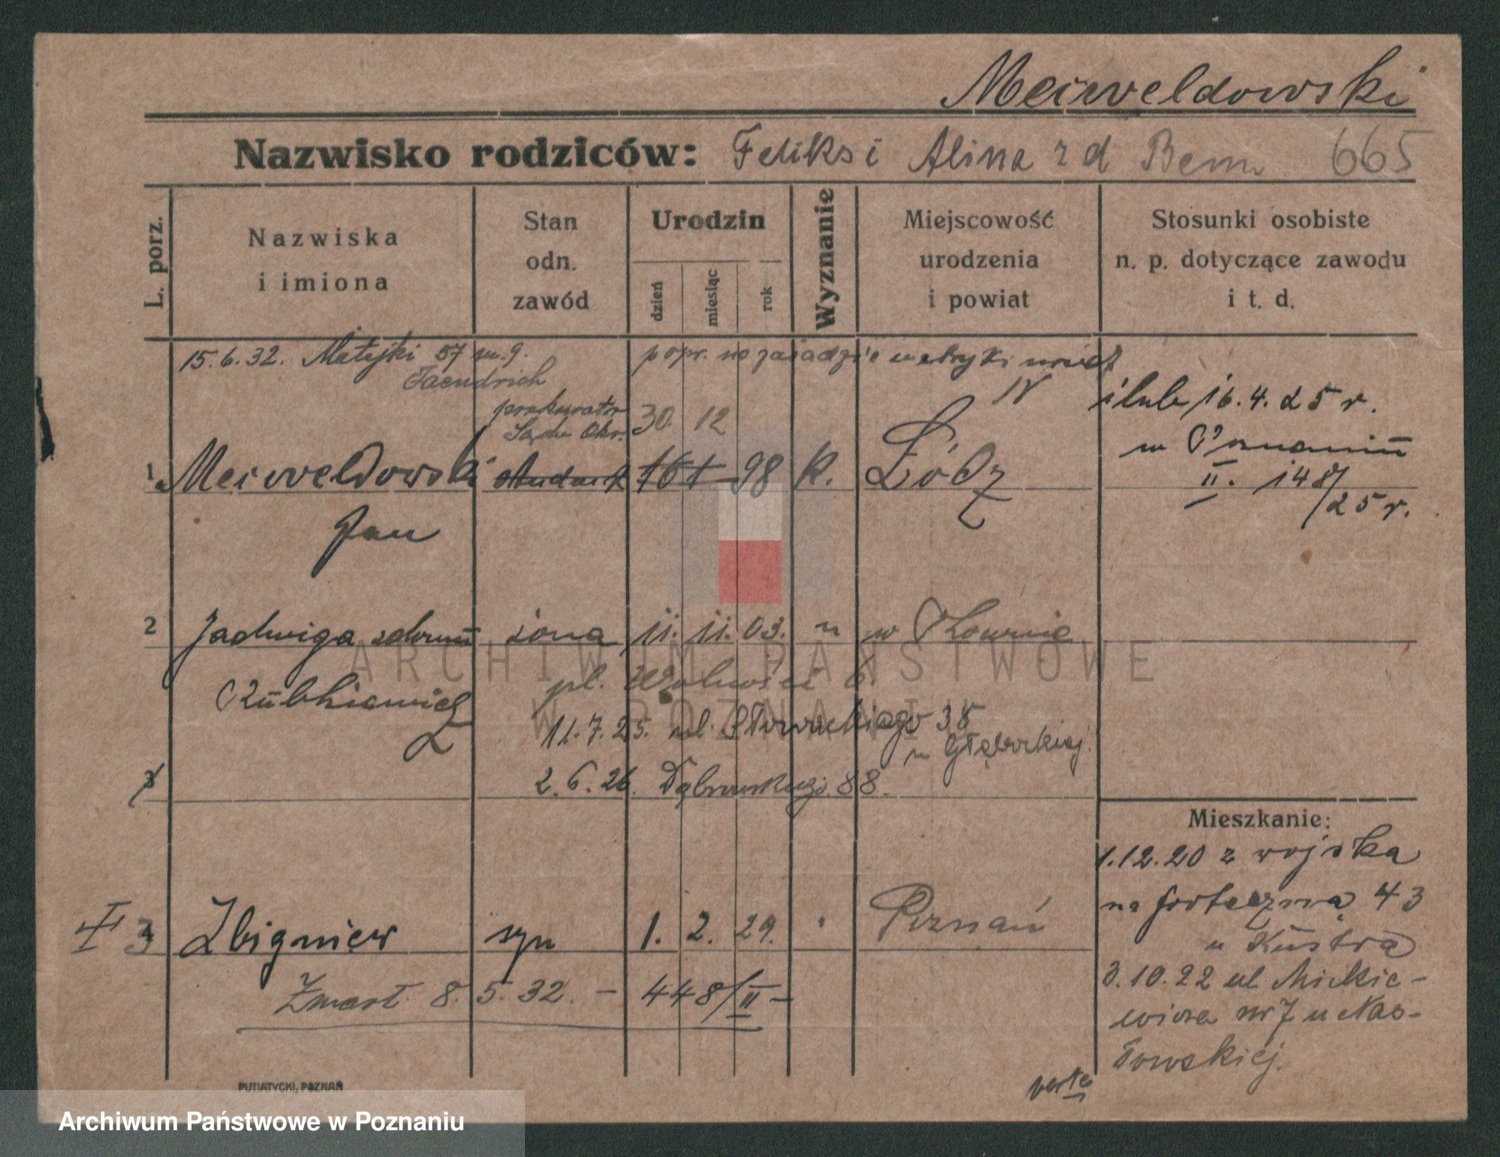 Meiweldowski
Nazwisko rodziców: Feliks i Alina z d Bem 665
L. porz.
Nazwiska
i imiona
Stan
odn.
zawód
Urodzin
dzień
miesiąc
rok
Wyznanie
Miejscowość
urodzenia
i powiat
Stosunki osobiste
n. p. dotyczące zawodu
i t. d.
15.6.32. Matejki 57 m. 9.
popr. na zasadzie metryki
IV
prokurator
Sądu Okr. 30 12
i ślub 16.4.25 r.
w Poznaniu
II. 148/
25 r.
1 Meiweldowski student 161 98 k. Łódz
Jan
2 Jadwiga żona 11. 11. 03. " w
pl. Wolności 6.
11.7.25. ul. Słowackiego 38
u Głębockiej.
3 2.6.26. Dąbrowskiego 88.
Mieszkanie:
1.12.20 z wojska
na forteczną 43
u Kustra
3.10.22 ul Mickie-
wicza nr 7 u Nas-
towskiej.
II 3 Zbigniew syn 1. 2. 29. " Poznań
Zmarł 8.5.32. – 448/II –
verte
PUTIATYCKI, POZNAŃ
ARCHIWUM PAŃSTWOWE
W POZNANIU
Archiwum Państwowe w Poznaniu